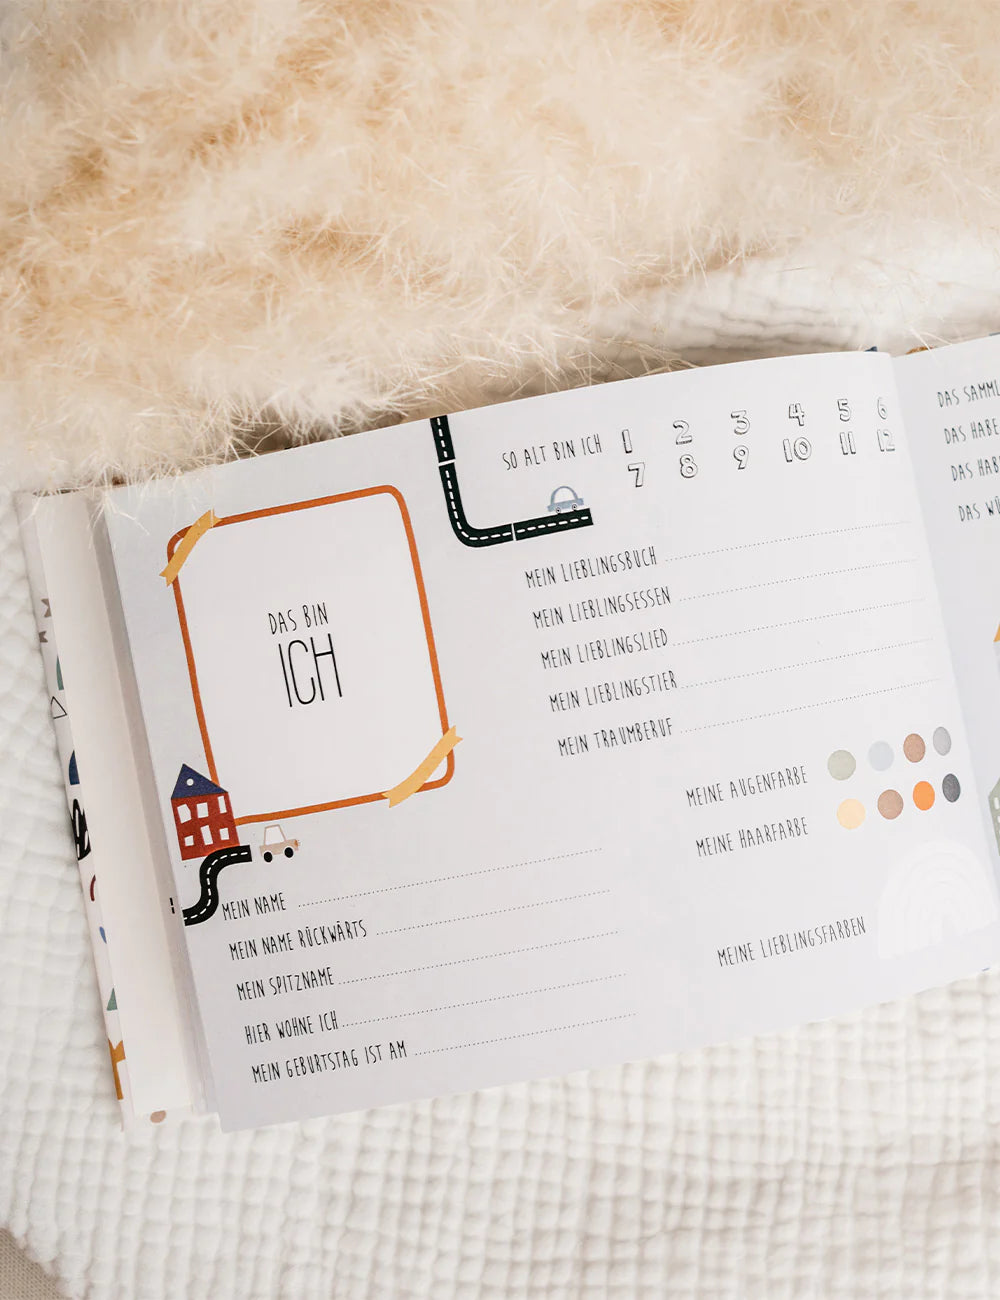 DAS BIN
ICH
SO ALT BIN ICH 1 2 3 4 5 6
7 8 9 10 11 12
MEIN LIEBLINGSBUCH
MEIN LIEBLINGSESSEN
MEIN LIEBLINGSLIED
MEIN LIEBLINGSTIER
MEIN TRAUMBERUF
MEINE AUGENFARBE
MEINE HAARFARBE
MEINE LIEBLINGSFARBEN
MEIN NAME
MEIN NAME RÜCKWÄRTS
MEIN SPITZNAME
HIER WOHNE ICH
MEIN GEBURTSTAG IST AM
DAS
DAS HABE
DAS
DAS